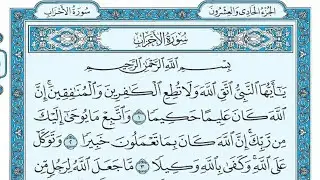 سُورَةُ الأَحْزَابِ
الجُزْءُ الحَادِى وَالعِشْرُونَ
سُورَةُ الأَحْزَابِ
بِسْمِ اللَّهِ الرَّحْمَٰنِ الرَّحِيمِ
يَٰٓأَيُّهَا النَّبِىُّ اتَّقِ اللَّهَ وَلَا تُطِعِ الْكَٰفِرِينَ وَالْمُنَٰفِقِينَ إِنَّ
اللَّهَ كَانَ عَلِيمًا حَكِيمًا ١ وَاتَّبِعْ مَا يُوحَىٰٓ إِلَيْكَ
مِن رَّبِّكَ إِنَّ اللَّهَ كَانَ بِمَا تَعْمَلُونَ خَبِيرًا ٢ وَتَوَكَّلْ
عَلَى اللَّهِ وَكَفَىٰ بِاللَّهِ وَكِيلًا ٣ مَّا جَعَلَ اللَّهُ لِرَجُلٍ مِّن